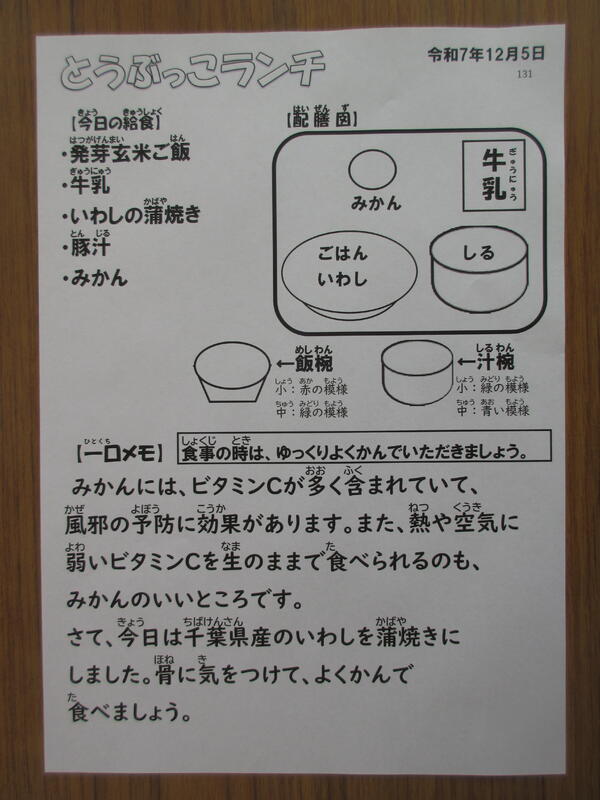 とうぶっこランチ
令和7年12月5日
131
【今日の給食】
・発芽玄米ご飯
・牛乳
・いわしの蒲焼き
・豚汁
・みかん
【配膳図】
みかん
牛乳
ごはん
いわし
しる
←飯椀
小：赤の模様
中：緑の模様
←汁椀
小：緑の模様
中：青い模様
【一口メモ】
食事の時は、ゆっくりよくかんでいただきましょう。
みかんには、ビタミンCが多く含まれていて、
風邪の予防に効果があります。また、熱や空気に
弱いビタミンCを生のままで食べられるのも、
みかんのいいところです。
さて、今日は千葉県産のいわしを蒲焼きに
しました。骨に気をつけて、よくかんで
食べましょう。